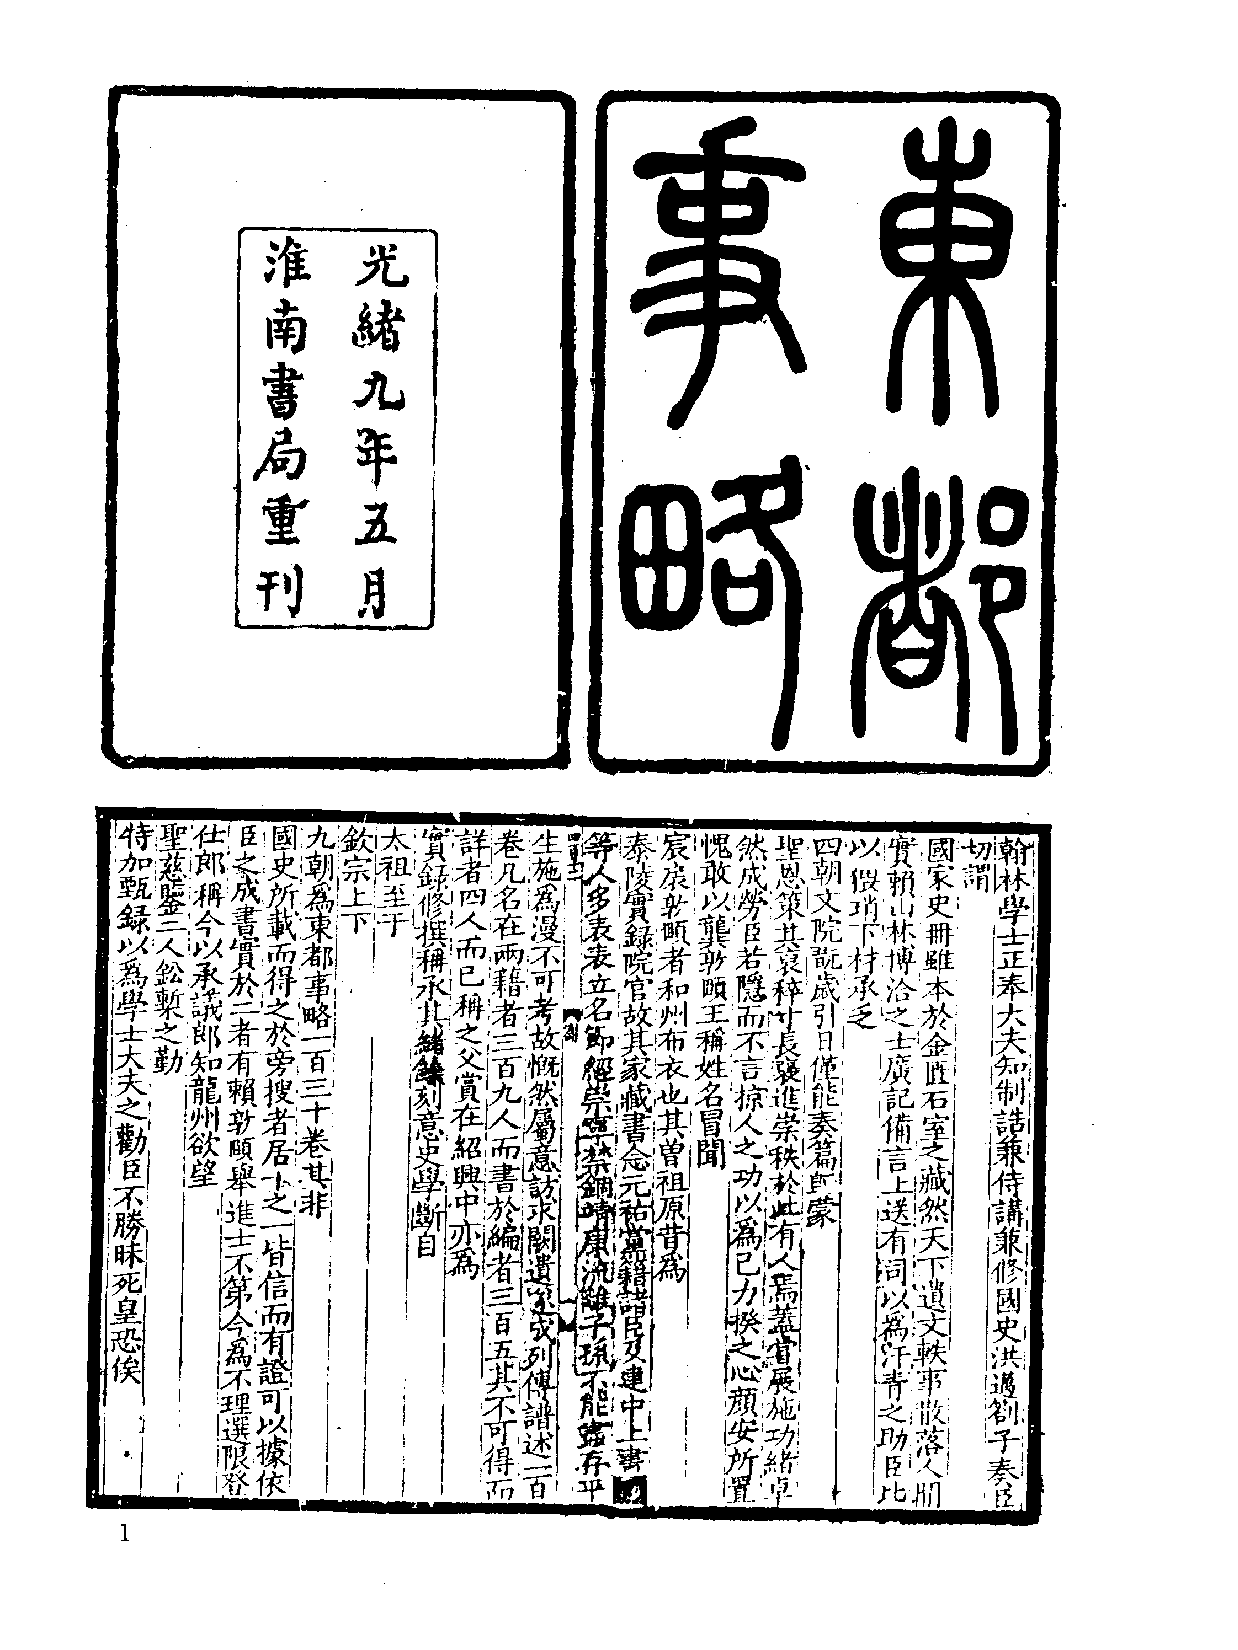 東都
事略
光緒九年五月
淮南書局重刊
翰林學士正奉大夫知制誥兼侍講兼修國史洪邁劄子奏臣
切謂
國家史冊雖本於金匱石室之藏然天下遺文軼事散落人間
實賴山林博洽之士廣記備言上送有司以爲汗青之助臣比
以假瑣下材承乏
四朝文院翫歲引日僅能奏篇卽蒙
聖恩策其裒稡寸長襃進崇秩於此有人焉蓋嘗展施功緒卓
然成勞臣若隱而不言掠人之功以爲已力揆之心顏安所置
愧敢以龔敦頤王稱姓名冒聞
宸扆敦頤者和州布衣也其曾祖原昔爲
泰陵實錄院官故其家藏書念元祐黨籍諸臣及建中上書
等人多表表立名節經崇寧禁錮靖康流離子孫不能盡存平
生施爲漫不可考故慨然屬意訪求闕遺遂成列傳譜述一百
卷凡名在兩籍者三百九人而書於編者三百五其不可得而
詳者四人而已稱之父賞在紹興中亦爲
實錄修撰稱承其緒餘刻意史學斷自
太祖至于
欽宗上下
九朝爲東都事略一百三十卷其非
國史所載而得之於旁搜者居十之一皆信而有證可以據依
臣之成書實於二者有賴敦頤舉進士不第今爲不理選限登
仕郎稱今以承議郎知龍州欲望
聖慈鑒二人鉛槧之勤
特加甄錄以爲學士大夫之勸臣不勝昧死皇恐俟
1